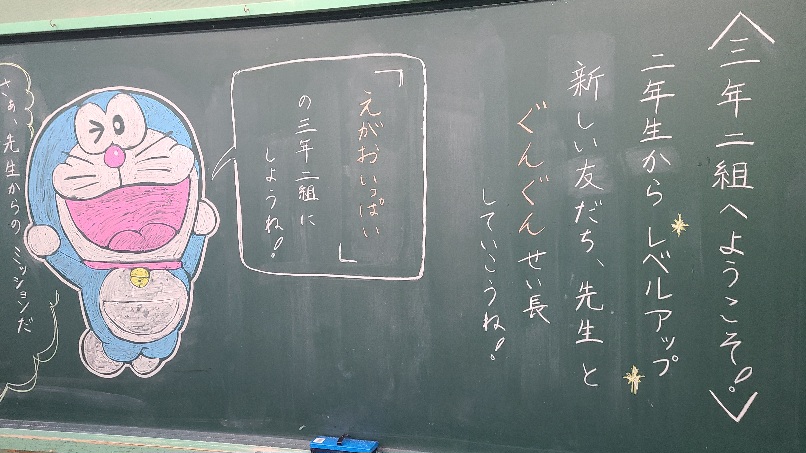 〈三年二組へようこそ!〉
二年生からレベルアップ
新しい友だち、先生と
ぐんぐんせい長
していこうね!
「えがおいっぱい」
の三年二組に
しようね!
さぁ、先生からのミッションだ